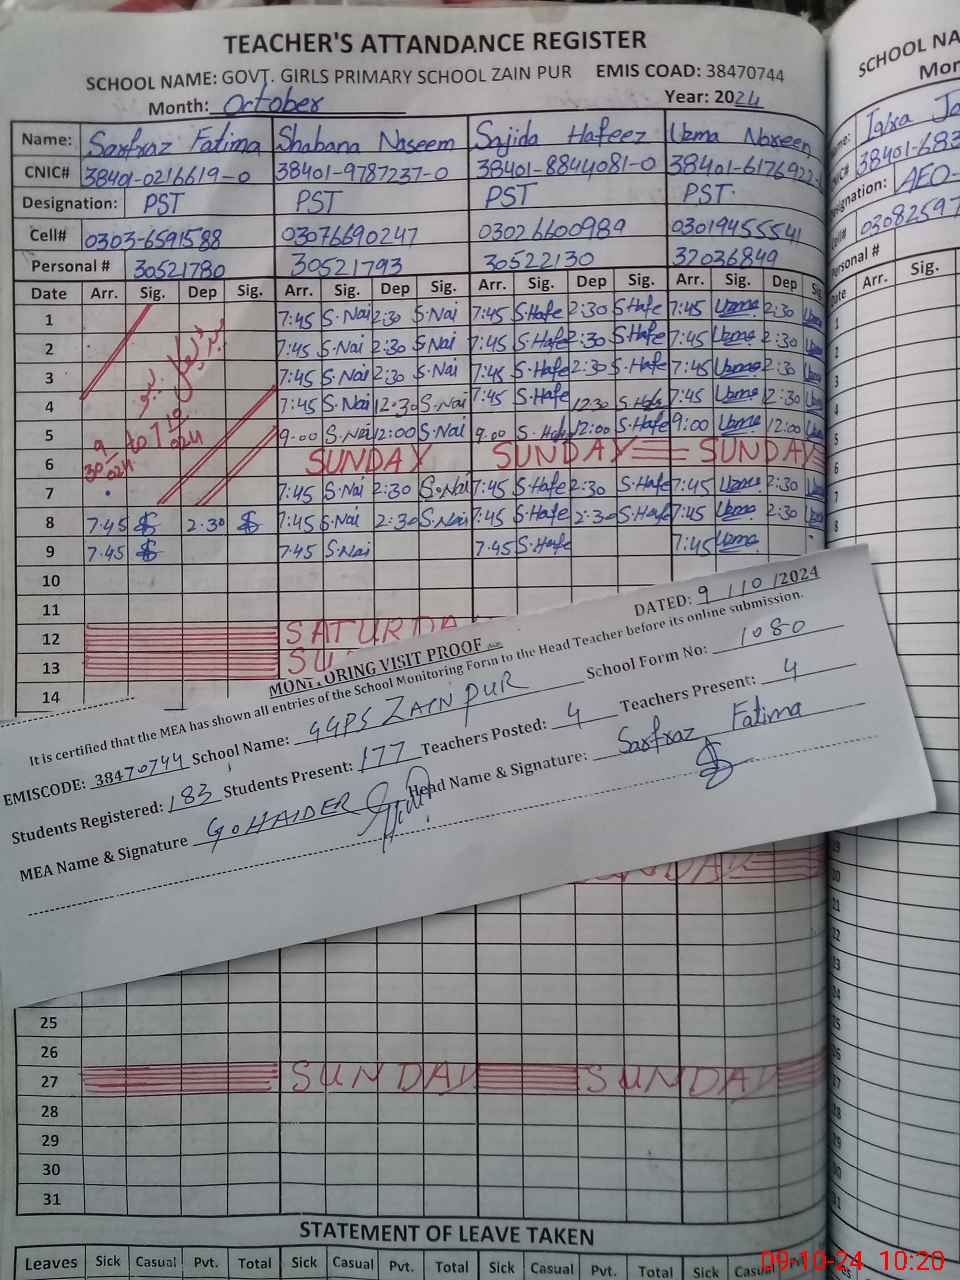 TEACHER'S ATTANDANCE REGISTER
SCHOOL NAME: GOVT. GIRLS PRIMARY SCHOOL ZAIN PUR EMIS COAD: 38470744
Month: October Year: 2024
Name: Sarfraz Fatima Shabana Naseem Sajida Hafeez Uzma Noreen
CNIC# 38401-0216619-0 38401-9787237-0 38401-8844081-0 38401-6176922-
Designation: PST PST PST PST
Cell# 0303-6591588 03076690247 03026600989 03019455541
Personal # 30521780 30521793 30522130 32036849
Date Arr. Sig. Dep Sig. Arr. Sig. Dep Sig. Arr. Sig. Dep Sig. Arr. Sig. Dep Sig
1 7:45 S.Nai 2:30 S.Nai 7:45 S.Hafe 2:30 S.Hafe 7:45 Uzma 2:30 Uzma
2 7:45 S.Nai 2:30 S.Nai 7:45 S.Hafe 2:30 S.Hafe 7:45 Uzma 2:30 Uzma
3 7:45 S.Nai 2:30 S.Nai 7:45 S.Hafe 2:30 S.Hafe 7:45 Uzma 2:30 Uzma
4 7:45 S.Nai 12:30 S.Nai 7:45 S.Hafe 12:30 S.Hafe 7:45 Uzma 2:30 Uzma
5 9.00 S.Nai 12:00 S.Nai 9.00 S.Hafe 12:00 S.Hafe 9:00 Uzma 12:00 Uzma
30 9 024 to 7 10 024
6 SUNDAY SUNDAY SUNDAY
7 7:45 S.Nai 2:30 S.Nai 7:45 S.Hafe 2:30 S.Hafe 7:45 Uzma 2:30 Uzma
8 7.45 2:30 7:45 S.Nai 2:30 S.Nai 7:45 S.Hafe 2:30 S.Hafe 7:45 Uzma 2:30 Uzma
9 7.45 7:45 S.Nai 7:45 S.Hafe 7:45 Uzma
10
11
12 SATURDA
13 SU
14
MONITORING VISIT PROOF DATED: 9/10/2024
It is certified that the MEA has shown all entries of the School Monitoring Form to the Head Teacher before its online submission.
EMISCODE: 38470744 School Name: GGPS ZAIN PUR School Form No: 1080
Students Registered: 183 Students Present: 177 Teachers Posted: 4 Teachers Present: 4
MEA Name & Signature G. HAIDER Head Name & Signature: Sarfraz Fatima
NDAY
25
26
27 SUNDAY SUNDAY
28
29
30
31
STATEMENT OF LEAVE TAKEN
Leaves Sick Casual Pvt. Total Sick Casual Pvt. Total Sick Casual Pvt. Total Sick Casual Pvt.
SCHOOL NA
Mon
Name: Iqra Ja
CNIC# 38401-683
Designation: AEO-
Cell# 03082597
Personal #
Date Arr. Sig.
09-10-24 10:20